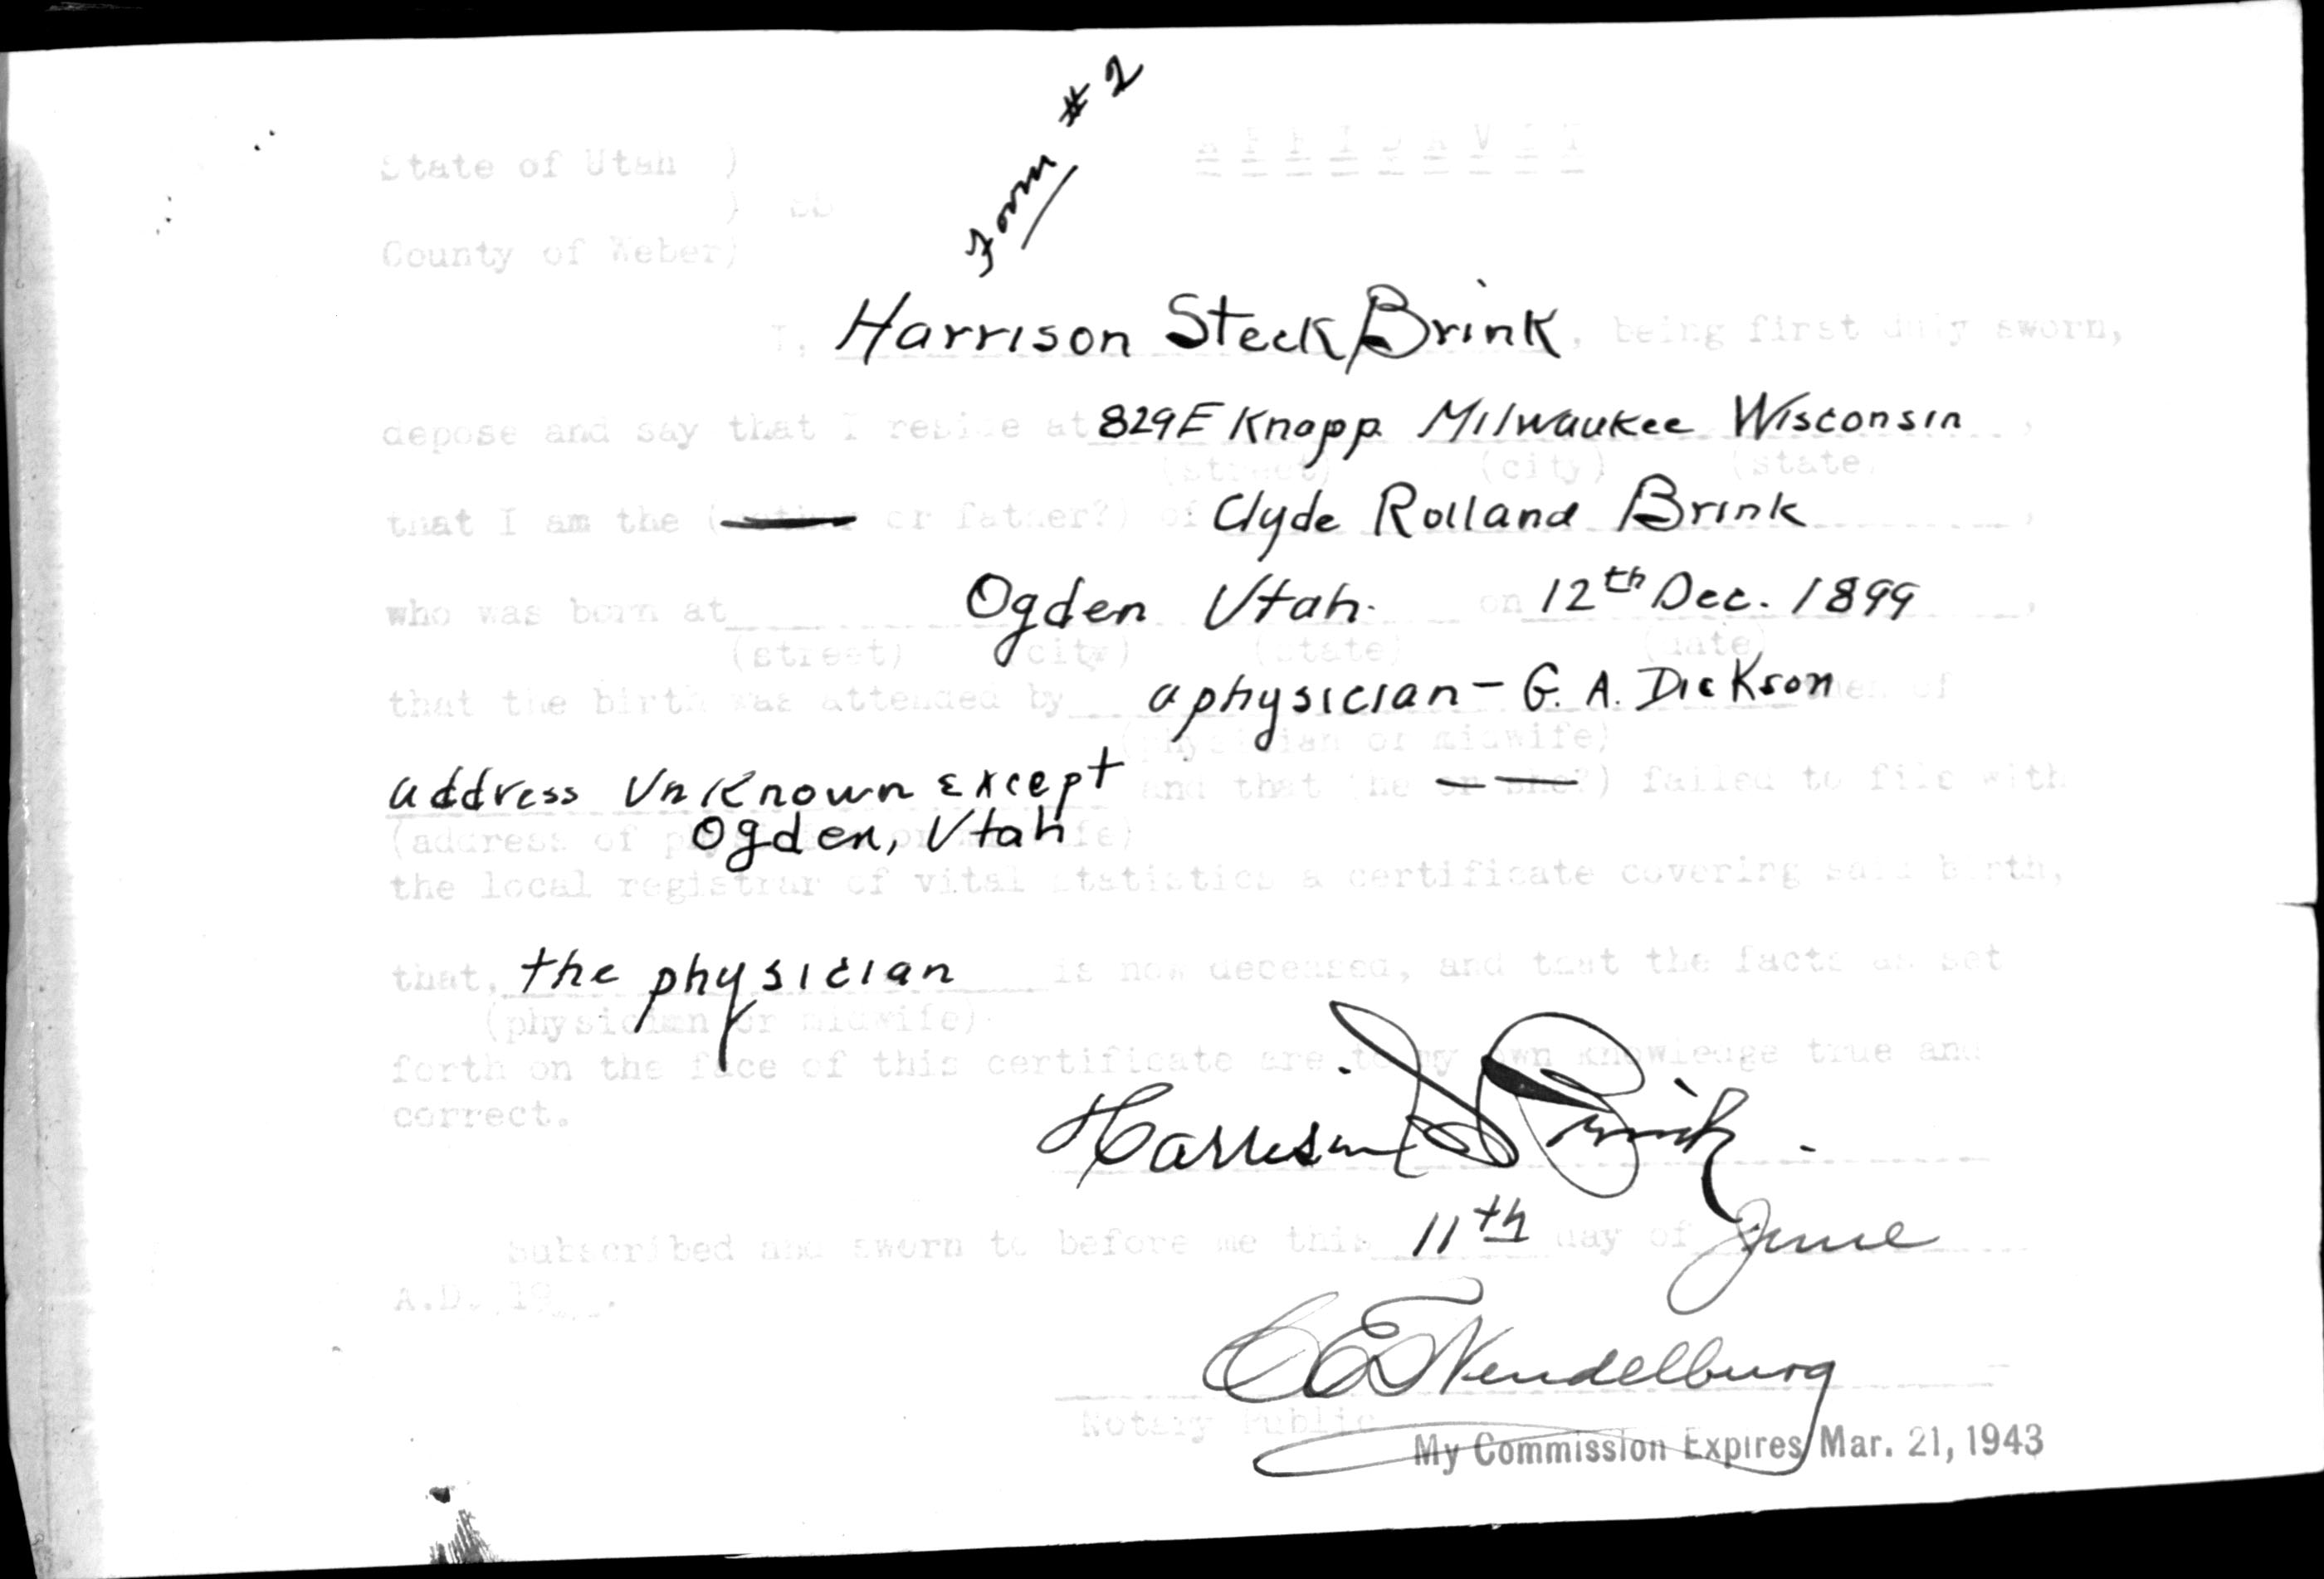 Form #2
State of Utah ) AFFIDAVIT
) SS
County of Weber)
I, Harrison Steck Brink, being first duly sworn,
depose and say that I reside at 829 E Knapp Milwaukee Wisconsin,
(street) (city) (state)
that I am the (mother or father?) of Clyde Rolland Brink,
who was born at Ogden Utah. on 12th Dec. 1899,
(street) (city) (state) (date)
that the birth was attended by a physician - G. A. Dickson of
(physician or midwife)
address Unknown except and that (he or she?) failed to file with
Ogden, Utah
(address of physician or midwife)
the local registrar of vital statistics a certificate covering said birth,
that, the physician is now deceased, and that the facts as set
(physician or midwife)
forth on the face of this certificate are to my own knowledge true and
correct.
Harrison S Brink.
Subscribed and sworn to before me this 11th day of June
A.D. 19
C E Wendelburg
Notary Public
My Commission Expires Mar. 21, 1943